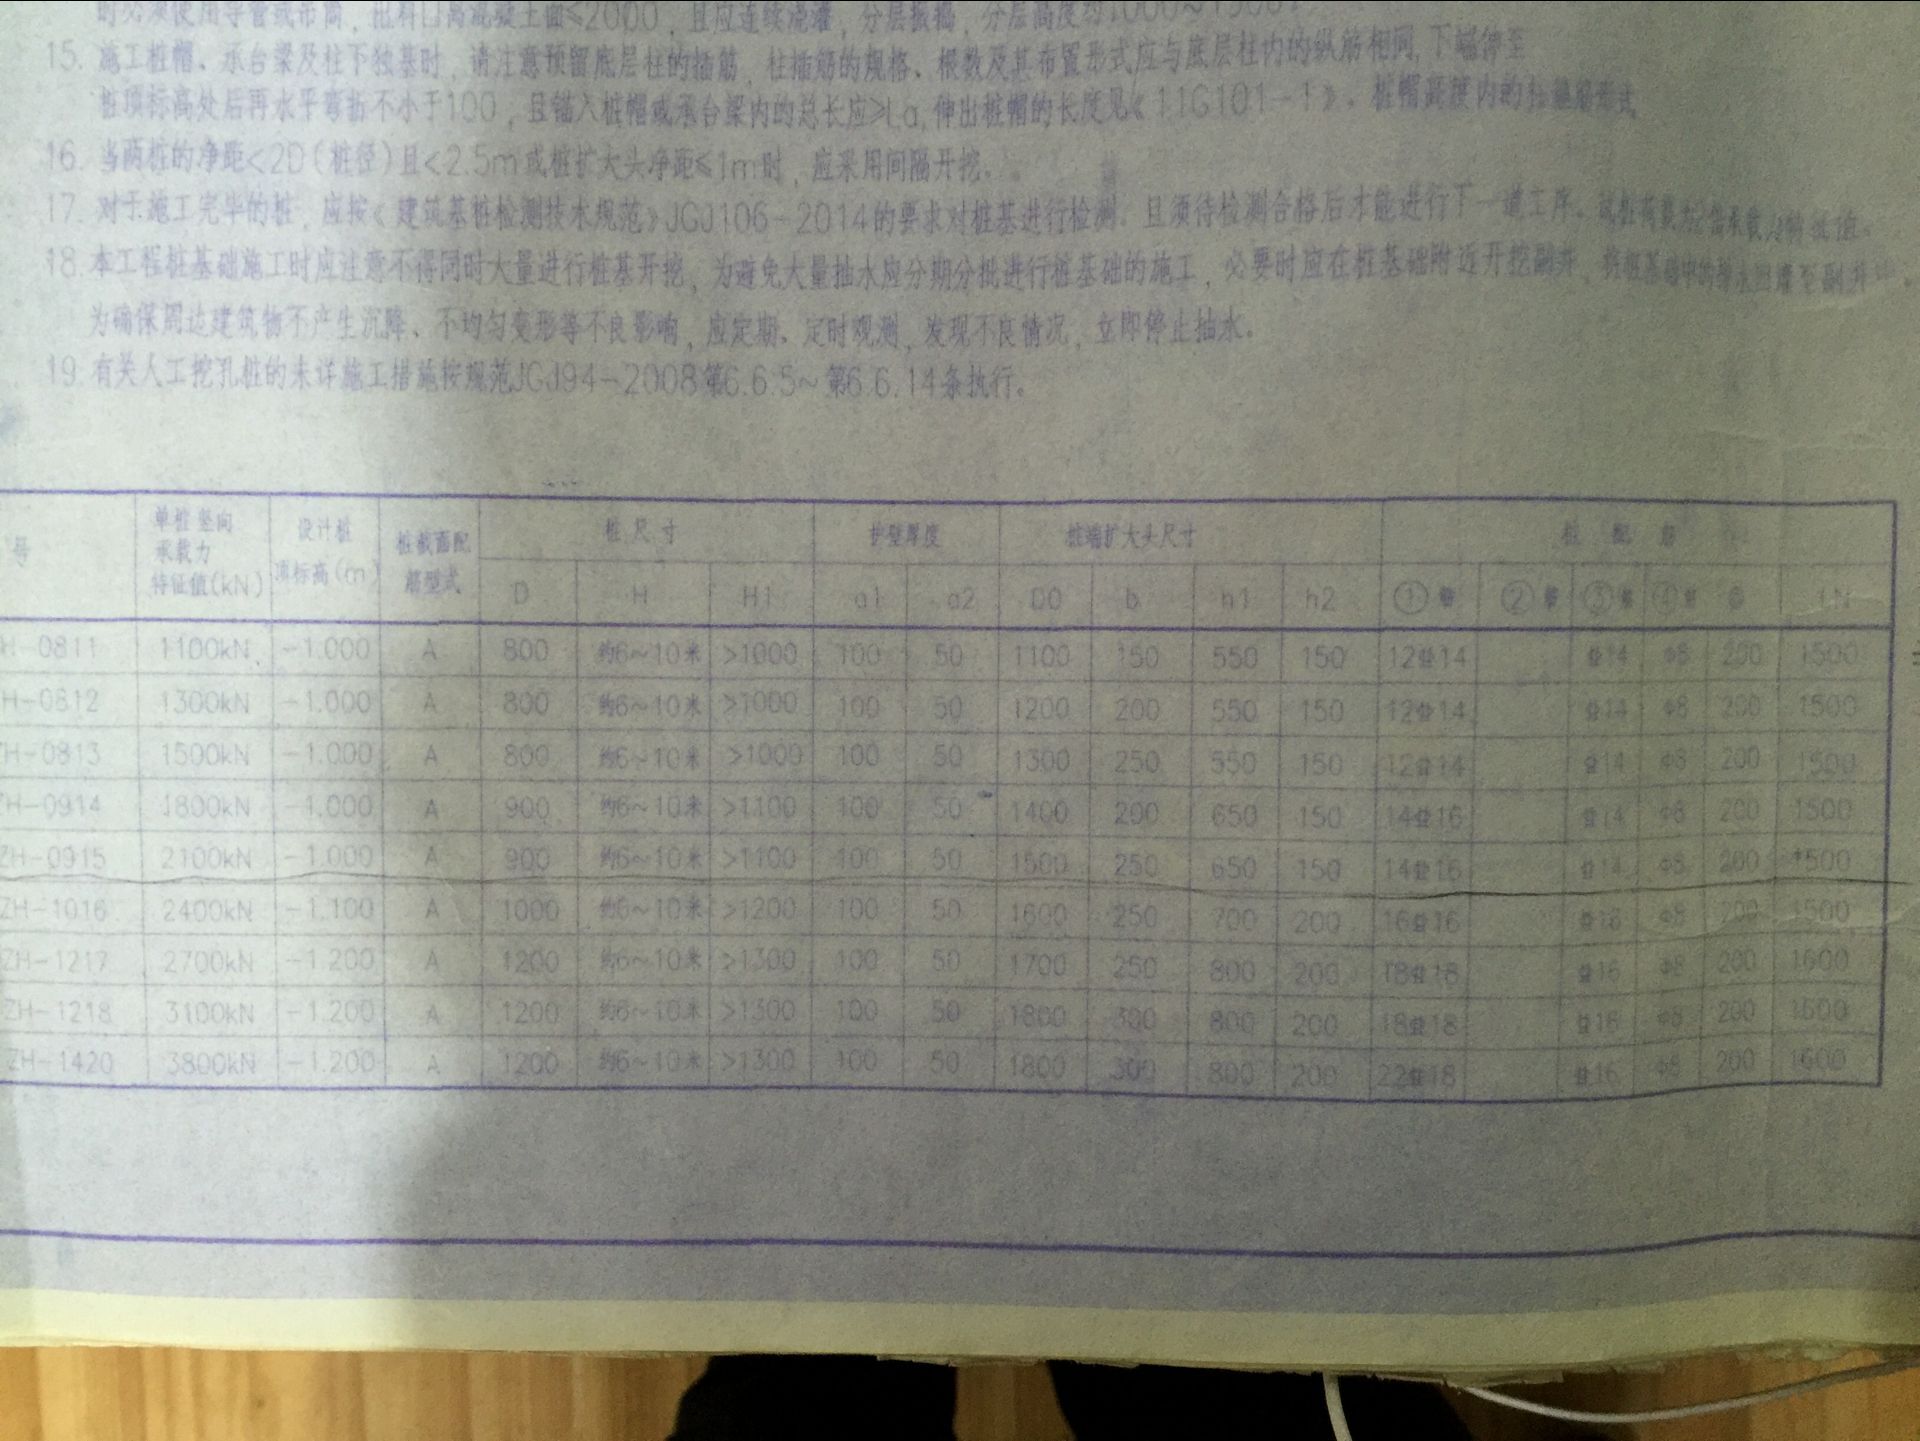 15. 施工桩帽、承台梁及柱下独基时，请注意预留底层柱的插筋，柱插筋的规格、根数及其布置形式应与底层柱内的纵筋相同，下端伸至
桩顶标高处后再水平弯折不小于100，且锚入桩帽或承台梁内的总长应≥La,伸出桩帽的长度见《11G101-1》。桩帽高度内的
16. 当两桩的净距<2D(桩径)且<2.5m或桩扩大头净距≤1m时，应采用间隔开挖。
17. 对于施工完毕的桩，应按《建筑基桩检测技术规范》JGJ106-2014的要求对桩基进行检测。且须待检测合格后才能进行下一道工序。
18. 本工程桩基础施工时应注意不得同时大量进行桩基开挖，为避免大量抽水应分期分批进行桩基础的施工，必要时应在桩基础附近开挖副井，
为确保周边建筑物不产生沉降、不均匀变形等不良影响，应定期、定时观测，发现不良情况，立即停止抽水。
19. 有关人工挖孔桩的未详施工措施按规范JGJ94-2008第6.6.5~第6.6.14条执行。
号 单桩竖向承载力特征值(kN) 设计桩顶标高(m) 桩截面配筋型式 桩尺寸 护壁厚度 桩端扩大头尺寸 桩配筋
D H H1 a1 a2 D0 b h1 h2 ① ② ③ ④ LN
H-0811 1100kN -1.000 A 800 约6~10米 >1000 100 50 1100 150 550 150 12⌀14 ⌀14 Φ8 200 1500
H-0812 1300kN -1.000 A 800 约6~10米 >1000 100 50 1200 200 550 150 12⌀14 ⌀14 Φ8 200 1500
ZH-0813 1500kN -1.000 A 800 约6~10米 >1000 100 50 1300 250 550 150 12⌀14 ⌀14 Φ8 200 1500
ZH-0914 1800kN -1.000 A 900 约6~10米 >1100 100 50 1400 200 650 150 14⌀16 ⌀14 Φ8 200 1500
ZH-0915 2100kN -1.000 A 900 约6~10米 >1100 100 50 1500 250 650 150 14⌀16 ⌀14 Φ8 200 1500
ZH-1016 2400kN -1.100 A 1000 约6~10米 >1200 100 50 1600 250 700 200 16⌀16 ⌀16 Φ8 200 1500
ZH-1217 2700kN -1.200 A 1200 约6~10米 >1300 100 50 1700 250 800 200 18⌀18 ⌀16 Φ8 200 1600
ZH-1218 3100kN -1.200 A 1200 约6~10米 >1300 100 50 1800 300 800 200 18⌀18 ⌀16 Φ8 200 1600
ZH-1420 3800kN -1.200 A 1200 约6~10米 >1300 100 50 1800 300 800 200 22⌀18 ⌀16 Φ8 200 1600